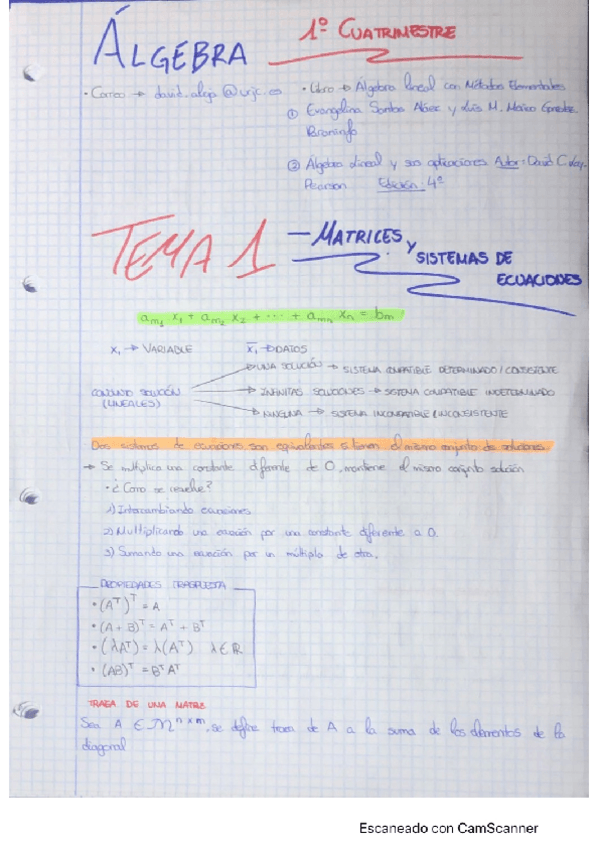 ÁLGEBRA
1º CUATRIMESTRE
• Correo → david.alga @urjc.es
• Libro → Álgebra lineal con Métodos Elementales
① Evangelina Santos Aláez y Luis M.
Paraninfo
② Álgebra Lineal y sus aplicaciones Autor: David C. Lay.
Pearson Edición 4ª
TEMA 1 – MATRICES y SISTEMAS DE ECUACIONES
am1 x1 + am2 x2 + ··· + amn xn = bm
x1 → VARIABLE x̄1 → DATOS
CONJUNTO SOLUCIÓN (LINEALES)
UNA SOLUCIÓN → SISTEMA COMPATIBLE DETERMINADO / CONSISTENTE
INFINITAS SOLUCIONES → SISTEMA COMPATIBLE INDETERMINADO
NINGUNA → SISTEMA INCOMPATIBLE / INCONSISTENTE
Dos sistemas de ecuaciones son equivalentes si tienen el mismo conjunto de soluciones
→ Se multiplica una constante diferente de 0, mantiene el mismo conjunto solución
• ¿Cómo se resuelve?
1) Intercambiando ecuaciones
2) Multiplicando una ecuación por una constante diferente a 0.
3) Sumando una ecuación por un múltiplo de otra.
PROPIEDADES TRASPUESTA
• (A^T)^T = A
• (A + B)^T = A^T + B^T
• (λA^T) = λ(A^T) λ ∈ ℝ
• (AB)^T = B^T A^T
TRAZA DE UNA MATRIZ
Sea A ∈ M^n×m, se define traza de A a la suma de los elementos de la
diagonal
Escaneado con CamScanner